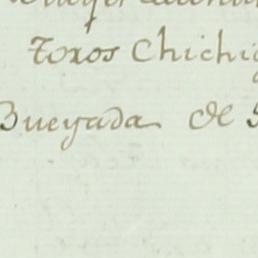 Toros Chichi
Bueyada de